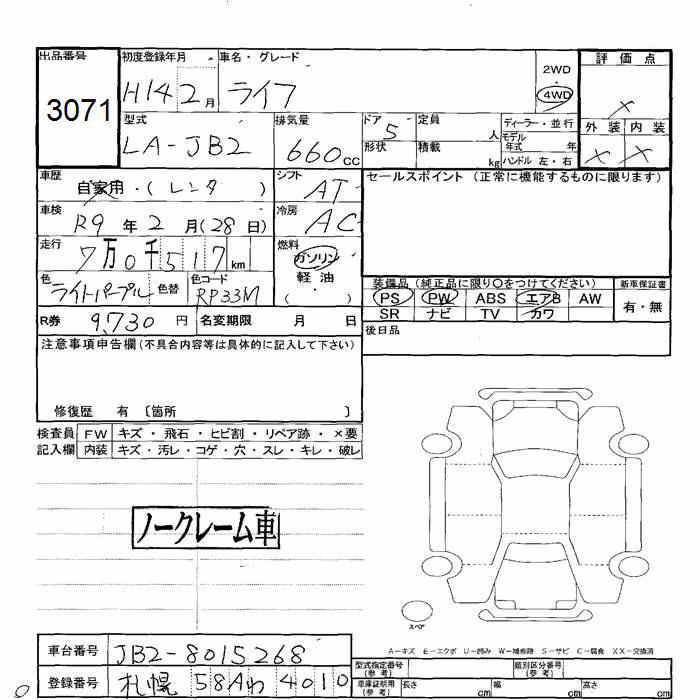 出品番号 初度登録年月 車名・グレード 評価点
3071 H14 2月 ライフ 2WD 4WD ×
型式 排気量 ドア 定員 ディーラー・並行 外装 内装
LA-JB2 660cc 5 人 モデル年式 年 × ×
形状 積載 kg ハンドル 左・右
車歴 自家用・(レンタ) シフト AT セールスポイント (正常に機能するものに限ります)
車検 R9年2月(28日) 冷房 AC
走行 7万0千517km 燃料 ガソリン
軽油
( )
色 ライトパープル 色替 色コード RP33M
装備品 (純正品に限り○をつけてください) 新車保証書
PS PW ABS エアB AW 有・無
SR ナビ TV カワ
R券 9,730円 名変期限 月 日
後日品
注意事項申告欄(不具合内容等は具体的に記入して下さい)
修復歴 有 〔箇所 〕
検査員 FW キズ・飛石・ヒビ割・リペア跡・×要
記入欄 内装 キズ・汚レ・コゲ・穴・スレ・キレ・破レ
ノークレーム車
スペア
A―キズ E―エクボ U―凹み W―補修跡 S―サビ C―腐食 XX―交換済
車台番号 JB2-8015268
型式指定番号(参考) 類別区分番号(参考)
登録番号 札幌 58A わ 4010
車庫証明用(参考) 長さ cm 幅 cm 高さ cm
0